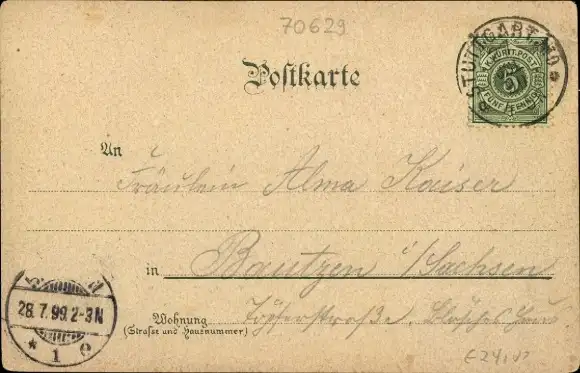 70629
STUTTGART. NO
K. WÜRTT. POST
5
FÜNF PFENNIG
Postkarte
An
Fräulein Alma Kaiser
in Bautzen i/Sachsen
28.7.99.2-3N
* 1 c
Wohnung
(Strasse und Hausnummer)
Töpferstraße